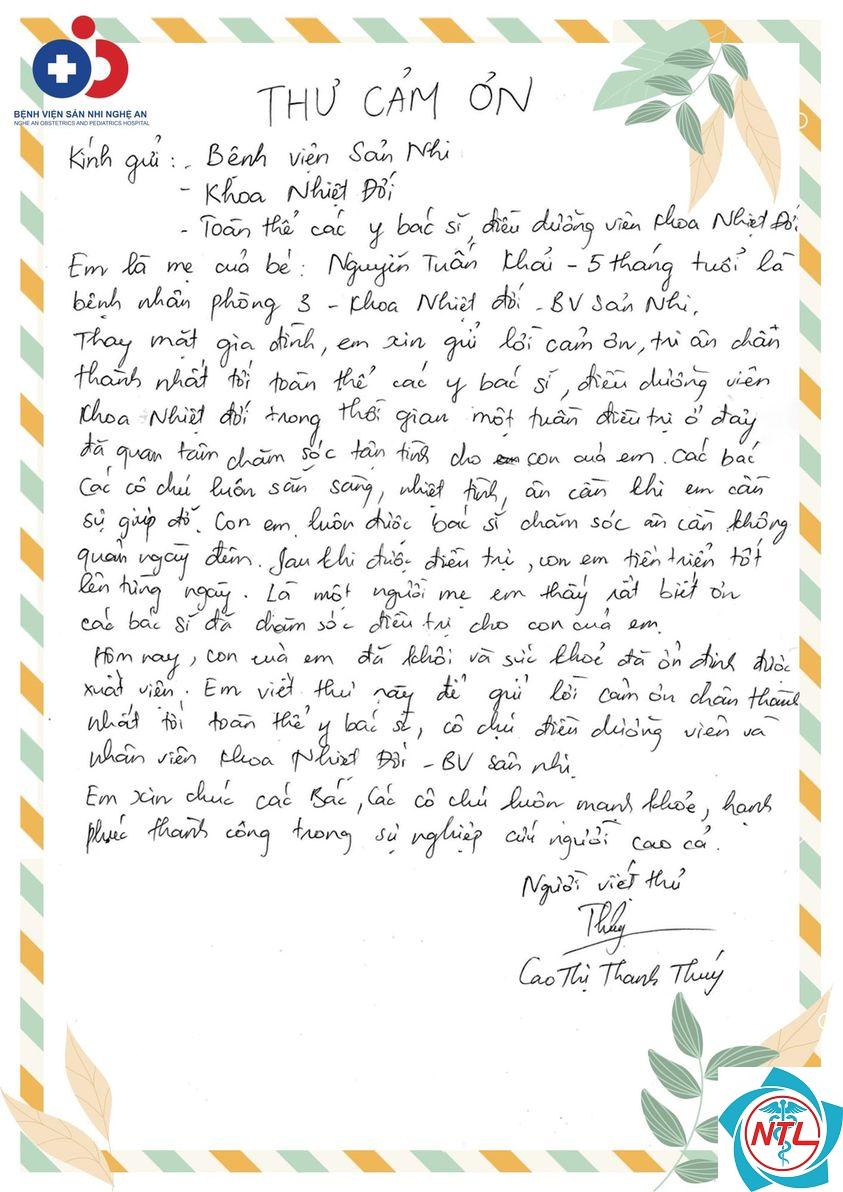 BỆNH VIỆN SẢN NHI NGHỆ AN
NGHE AN OBSTETRICS AND PEDIATRICS HOSPITAL
THƯ CẢM ƠN
Kính gửi : - Bệnh viện Sản Nhi
- Khoa Nhiệt Đới
- Toàn thể các y bác sĩ, điều dưỡng viên khoa Nhiệt Đới
Em là mẹ của bé : Nguyễn Tuấn Khải - 5 tháng tuổi là
bệnh nhân phòng 3 - Khoa Nhiệt đới - BV Sản Nhi.
Thay mặt gia đình, em xin gửi lời cảm ơn, tri ân chân
thành nhất tới toàn thể các y bác sĩ, điều dưỡng viên
Khoa Nhiệt đới trong thời gian một tuần điều trị ở đây
đã quan tâm chăm sóc tận tình cho con của em. Các bác
Các cô chú luôn sẵn sàng, nhiệt tình, ân cần khi em cần
sự giúp đỡ. Con em luôn được bác sĩ chăm sóc ân cần không
quản ngày đêm. Sau khi được điều trị, con em tiến triển tốt
lên từng ngày. Là một người mẹ em thấy rất biết ơn
các bác sĩ đã chăm sóc điều trị cho con của em.
Hôm nay, con của em đã khỏi và sức khoẻ đã ổn định được
xuất viện. Em viết thư này để gửi lời cảm ơn chân thành
nhất tới toàn thể y bác sĩ, cô chú điều dưỡng viên và
nhân viên khoa Nhiệt Đới - BV sản nhi.
Em xin chúc các Bác, Các cô chú luôn mạnh khỏe, hạnh
phúc thành công trong sự nghiệp cứu người cao cả.
Người viết thư
Thúy
Cao Thị Thanh Thúy
NTL